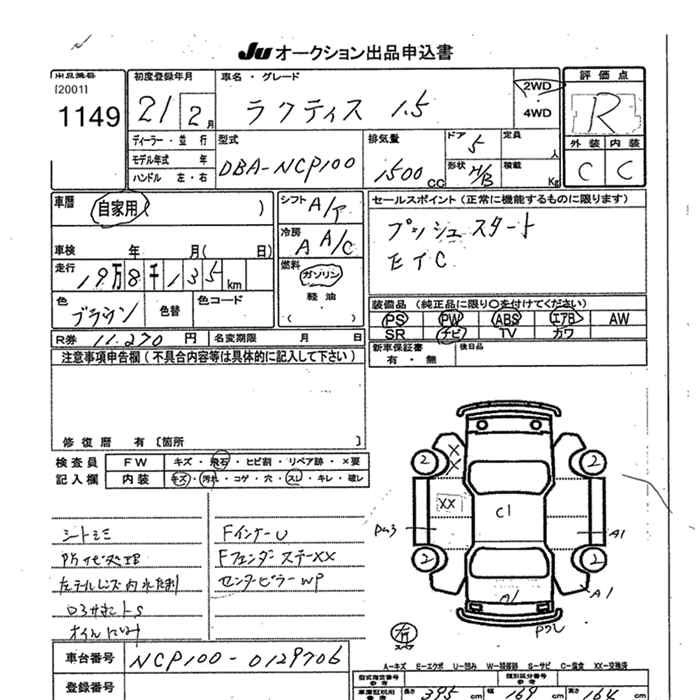 JU オークション出品申込書
[2001]
1149
初度登録年月
21 2月
車名・グレード
ラクティス 1.5
2WD
4WD
評価点
R
外装 内装
C C
ディーラー・並行
モデル年式 年
ハンドル 左・右
型式
DBA-NCP100
排気量
1500 CC
ドア 5
形状 H/B
定員 人
積載 Kg
車暦
自家用( )
車検 年 月( 日)
走行
19万8千135km
色
ブラウン
色替
色コード
シフト A/T
冷房 A A/C
燃料
ガソリン
軽油
( )
セールスポイント(正常に機能するものに限ります)
プッシュスタート
ETC
装備品(純正品に限り○を付けてください)
PS PW ABS エアB AW
SR ナビ TV カワ
R券 11.270 円
名変期限 月 日
新車保証書
有・無
後日品
注意事項申告欄(不具合内容等は具体的に記入して下さい)
修復歴 有 [箇所 ]
検査員
記入欄
FW キズ・飛石・ヒビ割・リペア跡・×要
内装 キズ・汚れ・コゲ・穴・スレ・キレ・破レ
シトミミ
FインナーU
FフェンダーステーXX
センターピラーWP
2
2
2
2
XX
XX
C1
A1
A1
有
A-キズ E-エクボ U-凹み W-補修跡 S-サビ C-腐食 XX-交換済
車台番号
NCP100-0129706
登録番号
型式指定番号
類別区分番号
長さ 395 cm
幅 169 cm
高さ 164 cm